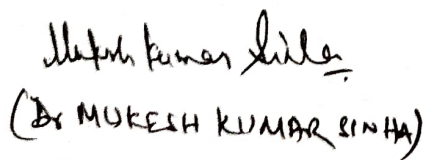 Mukesh Kumar Sinha
(Dr MUKESH KUMAR SINHA)